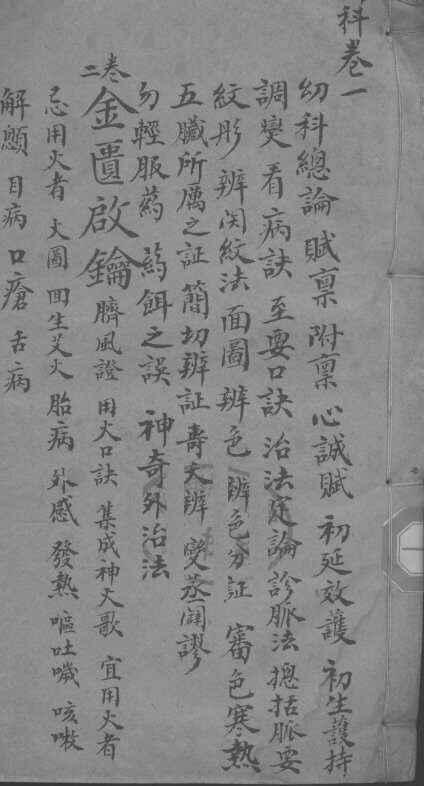 科卷一
幼科總論 賦禀 附禀 心誠賦 初延效護 初生護持
調燮 看病訣 至要口訣 治法定論 診脈法 摠括脈要
紋形 辨関紋法 面圖 辨色 辨色分証 審色寒熱
五臟所属之証 簡切辨証 壽夭辨 變蒸闢謬
勿輕服药 药餌之誤 神奇外治法
卷二
金匱啟鑰 臍風證 用火口訣 集成神火歌 宜用火者
忌用火者 火圖 回生艾火 胎病 外感 發熱 嘔吐噦 咳嗽
解顱 目病 口瘡 舌病